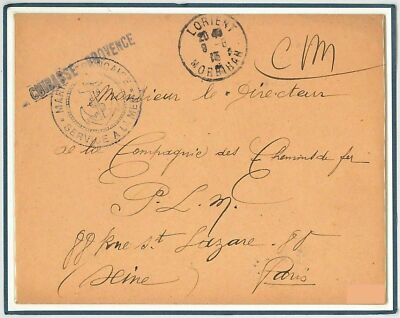 CUIRASSE PROVENCE
MARINE FRANÇAISE
SERVICE A LA MER
LORIENT
20
8 - 8
15
MORBIHAN
CM
Monsieur le Directeur
de la Compagnie des Chemins de fer
P. L. M.
88 Rue St Lazare. 88
(Seine) Paris